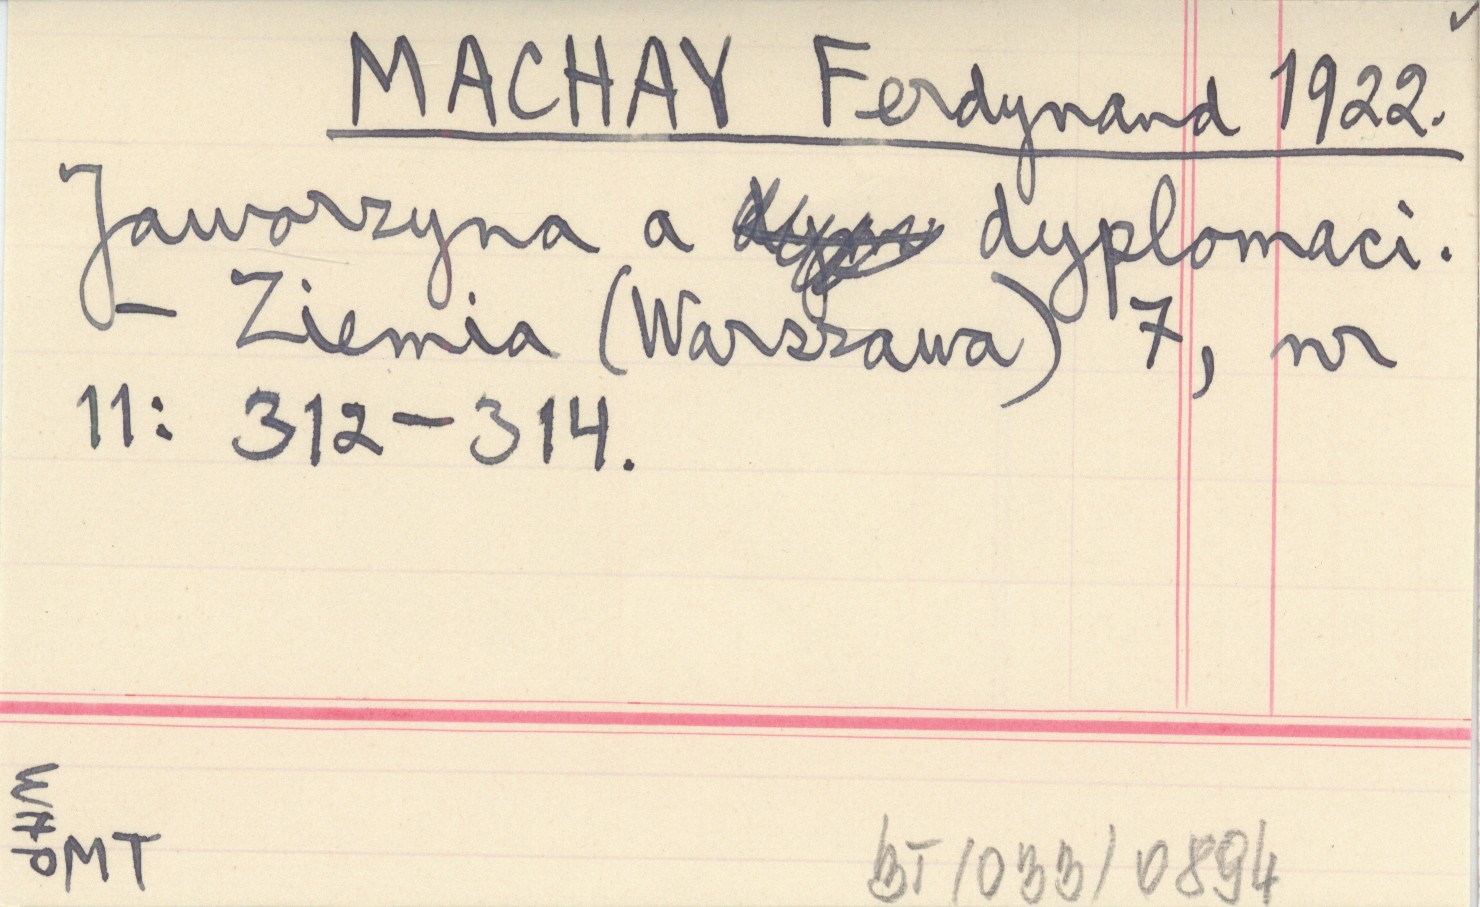 MACHAY Ferdynand 1922.
Jaworzyna a dyplomaci.
- Ziemia (Warszawa) 7, nr
11: 312-314.
MT
BT/033/0894